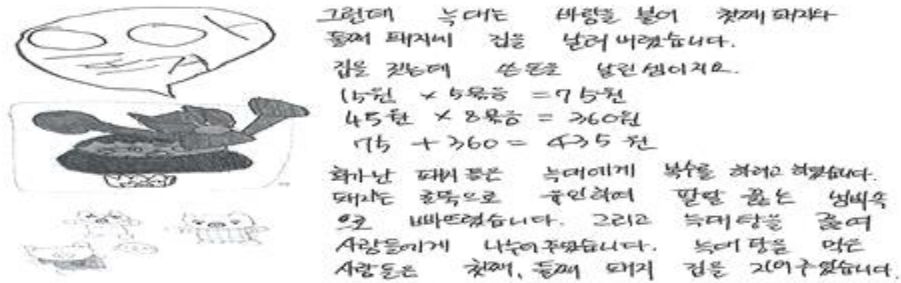 그런데 늑대는 바람을 불어 첫째 돼지와
둘째 돼지네 집을 날려 버렸습니다.
집을 짓는데 쓴 돈을 날린 셈이지요.
15원 × 5묶음 = 75원
45원 × 8묶음 = 360원
75 + 360 = 435 원
화가 난 돼지 들은 늑대에게 복수를 하려고 하였습니다.
돼지는 굴뚝으로 유인하여 팔팔 끓는 냄비속
으로 빠뜨렸습니다. 그리고 늑대탕을 끓여
사람들에게 나누어주었습니다. 늑대 탕을 먹은
사람들은 첫째, 둘째 돼지 집을 지어주었습니다.